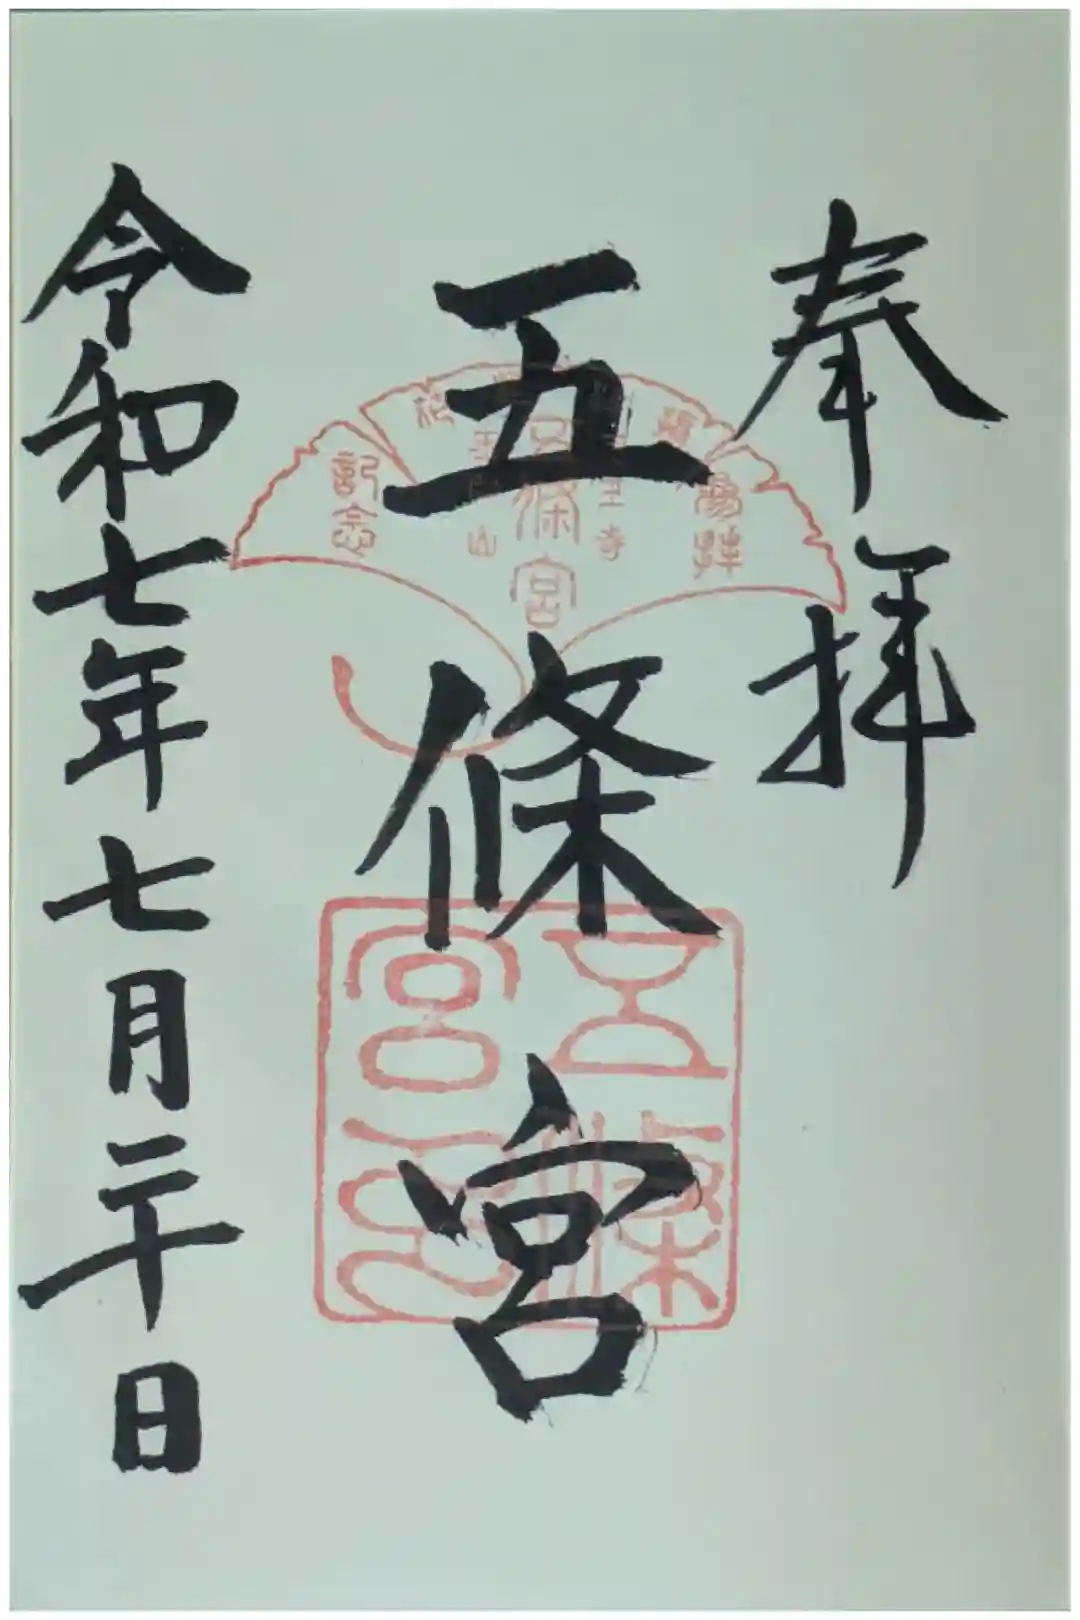 奉拝
五條宮
令和七年七月二十日
五條宮
記念
五條宮